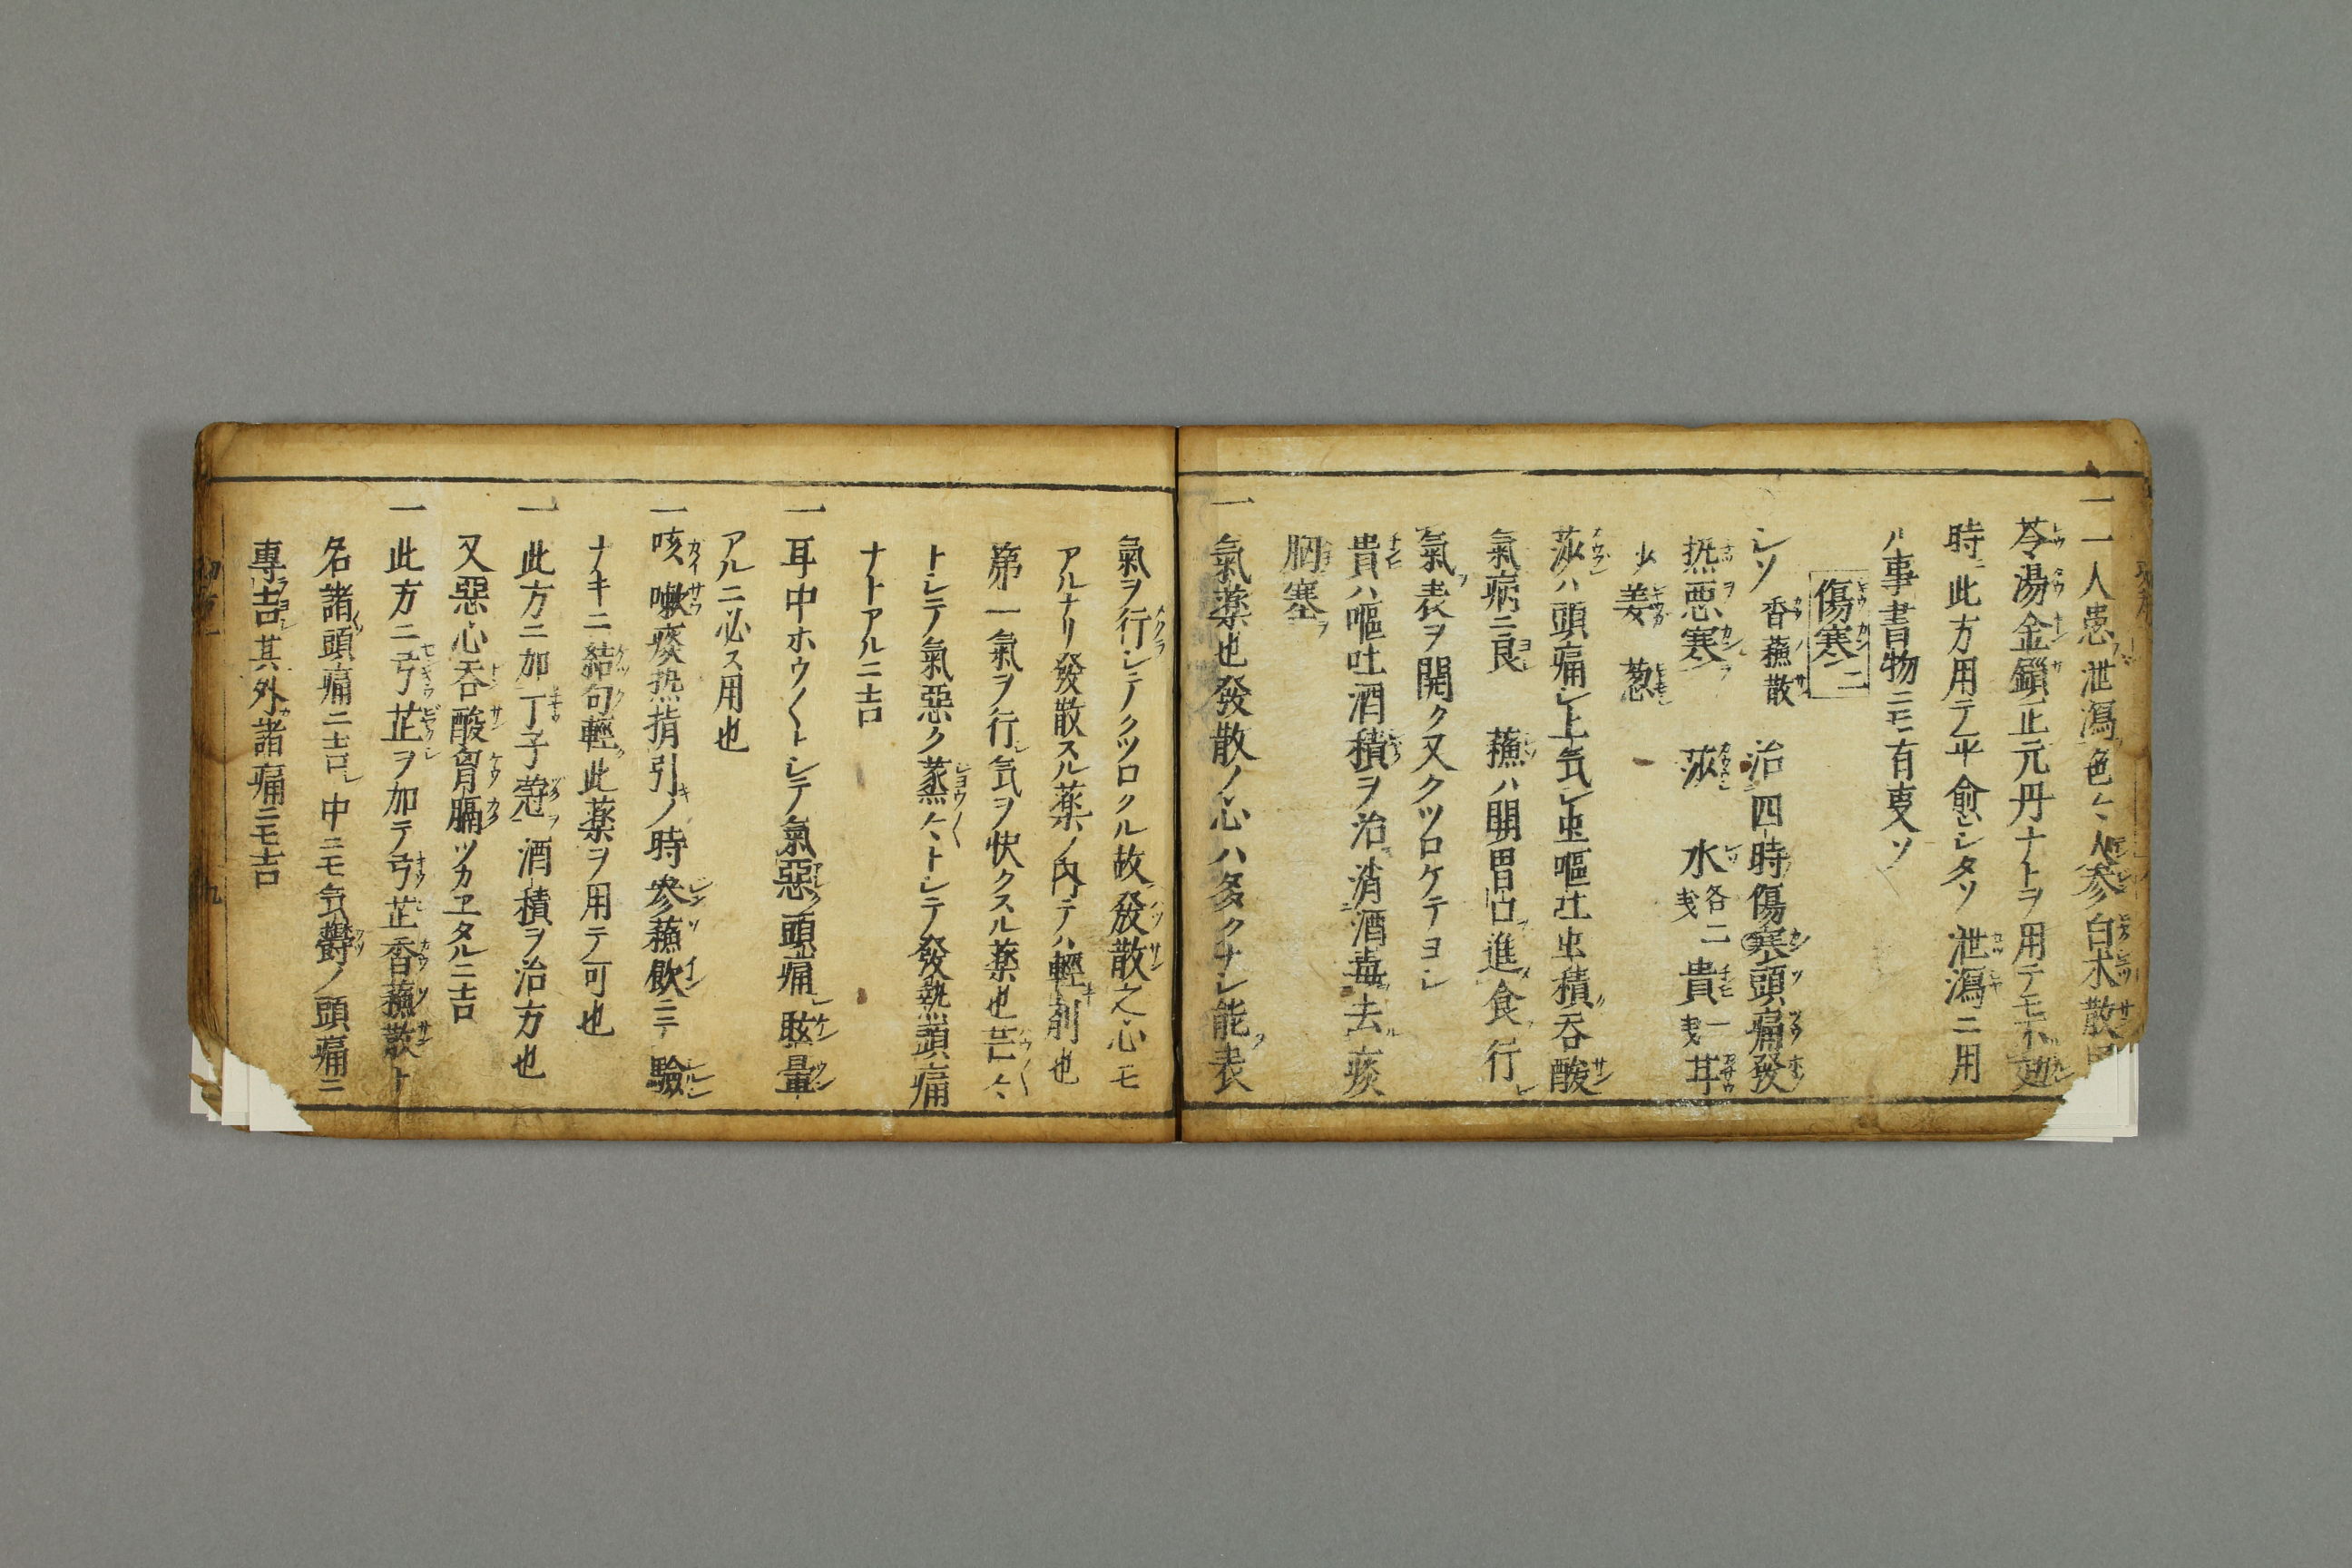 一一人患泄瀉色〻人參白朮散
苓湯金鎖正元丹ナトヲ用テモ不
時此方用テ平愈シタソ泄瀉ニ用
ル事書物ニモ有叓ソ
傷寒二
シソ 香蘓散 治四時傷寒頭痛發
𤍠悪寒 莎 水各二戔貴一戔甘
少姜葱
莎ハ頭痛シ上気シ虫嘔吐虫積呑酸
氣病ニ良 蘓ハ開胃口進食行
氣表ヲ開ク又クツロケテヨシ
貴ハ嘔吐酒積ヲ治消酒毒去痰
胸塞ヲ
一氣薬也發散ノ心ハ多クナシ能表
氣ヲ行シテクツロクル故發散之心モ
アルナリ發散スル薬ノ内テハ輕剤也
第一氣ヲ行シ気ヲ快クスル薬也芒〻
トシテ氣惡ク蒸〻トシテ發熱頭痛
ナトアルニ吉
一耳中ホウ〱トシテ氣惡ク頭痛シ眩暈
アルニ必ス用也
一咳嗽痰𤍠指引ノ時參蘓飲ニテ驗
ナキニ結句輕ク此薬ヲ用テ可也
一此方ニ加丁子䓗ヲ酒積ヲ治方也
又惡心呑酸胷膈ツカエタルニ吉
一此方ニ芎芷ヲ加テ芎芷香蘓散ト
名諸頭痛ニ吉シ中ニモ気欝ノ頭痛ニ
專吉其外諸痛ニモ吉
九